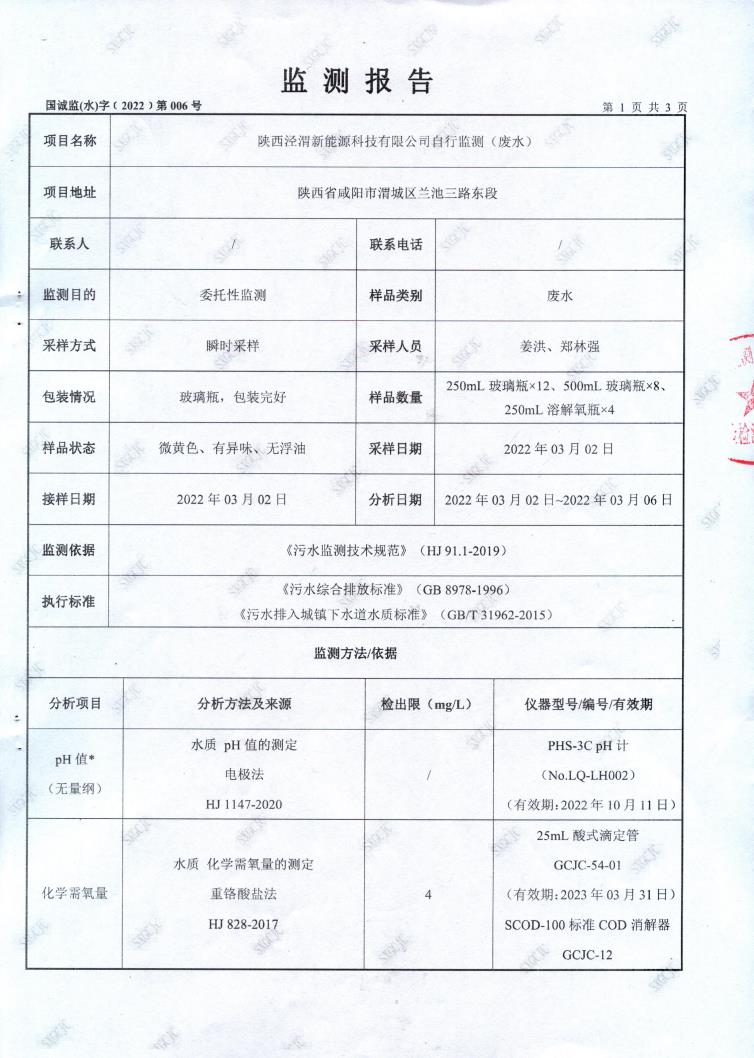 监测报告
国诚监(水)字﹝2022﹞第006号
第 1 页 共 3 页
项目名称 陕西泾渭新能源科技有限公司自行监测（废水）
项目地址 陕西省咸阳市渭城区兰池三路东段
联系人 / 联系电话 /
监测目的 委托性监测 样品类别 废水
采样方式 瞬时采样 采样人员 姜洪、郑林强
包装情况 玻璃瓶，包装完好 样品数量 250mL 玻璃瓶×12、500mL 玻璃瓶×8、
250mL 溶解氧瓶×4
样品状态 微黄色、有异味、无浮油 采样日期 2022 年 03 月 02 日
接样日期 2022 年 03 月 02 日 分析日期 2022 年 03 月 02 日~2022 年 03 月 06 日
监测依据 《污水监测技术规范》（HJ 91.1-2019）
执行标准 《污水综合排放标准》（GB 8978-1996）
《污水排入城镇下水道水质标准》（GB/T 31962-2015）
监测方法/依据
分析项目 分析方法及来源 检出限（mg/L） 仪器型号/编号/有效期
pH 值*
（无量纲）
水质 pH 值的测定
电极法
HJ 1147-2020
/
PHS-3C pH 计
（No.LQ-LH002）
（有效期：2022 年 10 月 11 日）
化学需氧量
水质 化学需氧量的测定
重铬酸盐法
HJ 828-2017
4
25mL 酸式滴定管
GCJC-54-01
（有效期：2023 年 03 月 31 日）
SCOD-100 标准 COD 消解器
GCJC-12